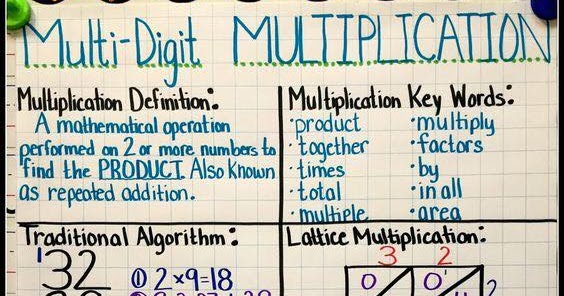 Multi-Digit MULTIPLICATION
Multiplication Definition:
A mathematical operation
performed on 2 or more numbers to
find the PRODUCT. Also known
as repeated addition.
Multiplication Key Words:
•product •multiply
•together •factors
•times •by
•total •in all
•multiple •area
Traditional Algorithm:
1
32
① 2×9=18
Lattice Multiplication:
3 2
0 0
2